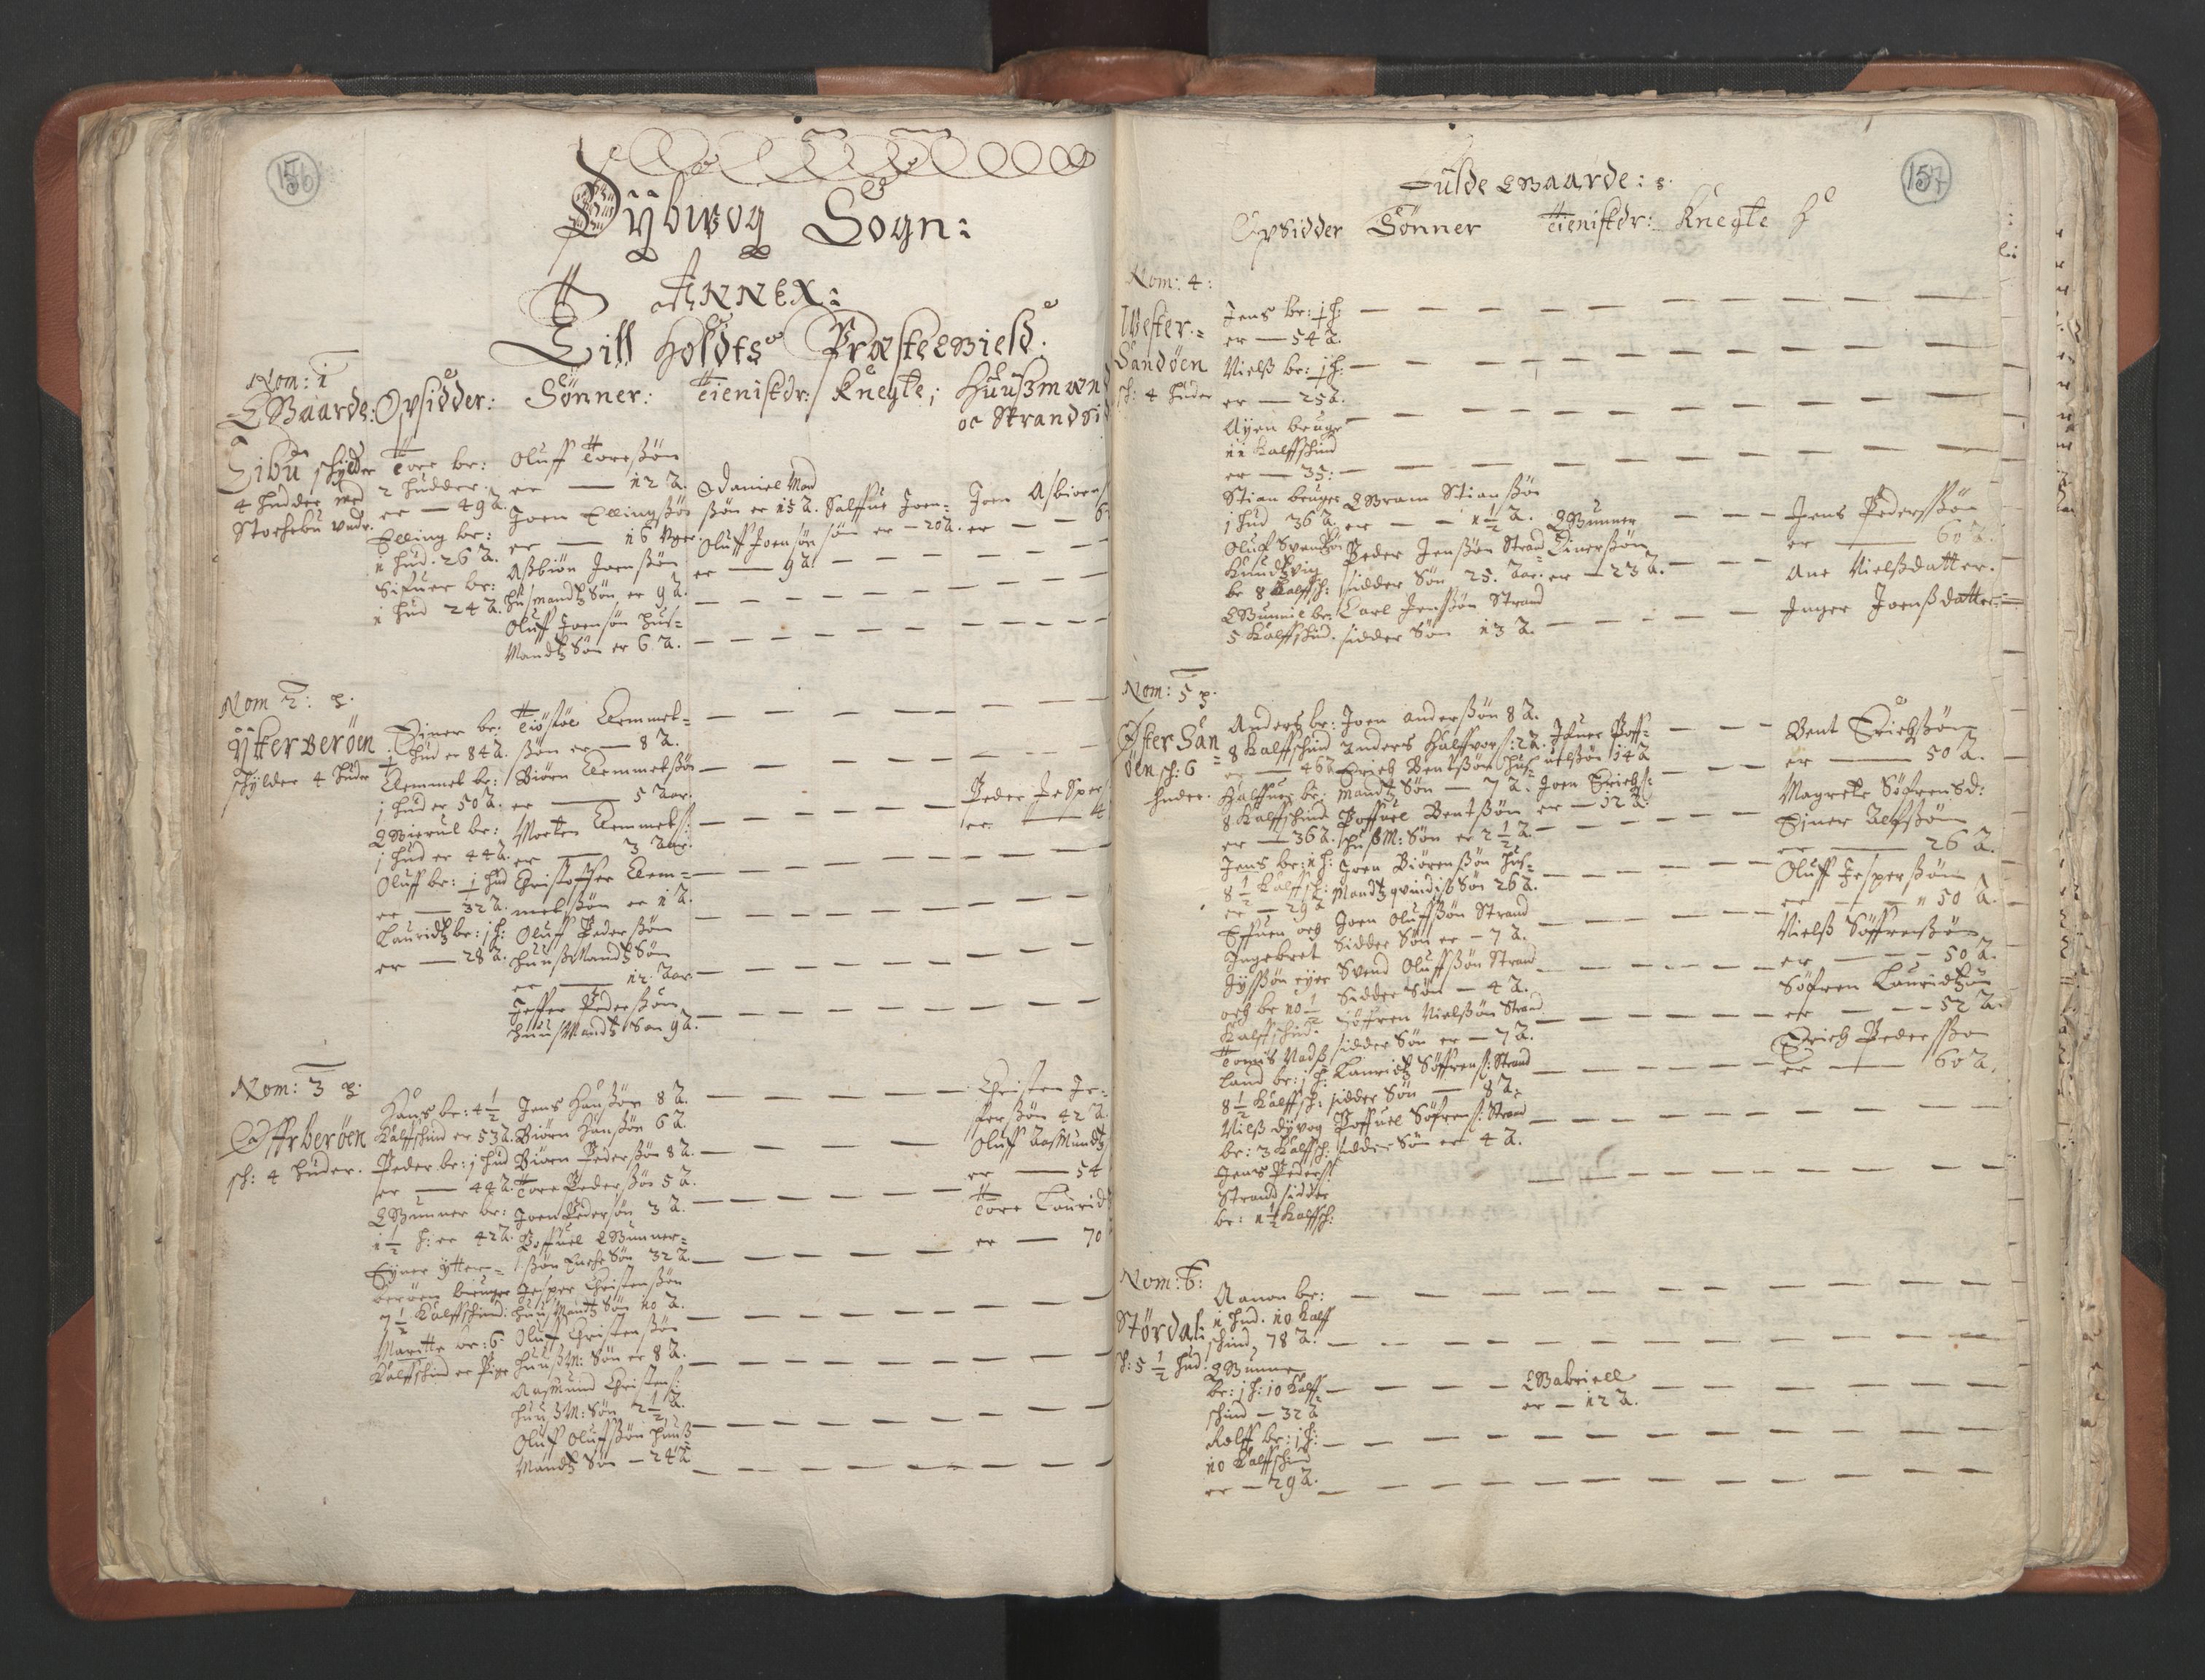 156
Dÿbwog Sogn:
Annex:
Till Holdts Præstegield.
Nom: 1
Gaarde: Opsidder: Sönner: Tienistdr: Knegte; Huußmænd
oc Strandsid
Eibu schylder
4 hudder med
Storhebu undr.
Tore br:
2 hudder.
er — 49 A.
Elling br:
1 hud. 26 A.
Sifuer br:
1 hud 24 A.
Oluff Toreßön
er — 12 A.
Joen Ellingßön
er — 16 Uger
Aßbiön Joenßön
husmandtz Sön er 9 A.
Oluff Joensön hus=
Mandtz Sön er 6 A.
Daniel Mad
ßön er 15 A. Salffue Joen=
sön er — 20 A.
Oluff Joensön
er — 9 A.
Joen Asbiorns
er — — 6
Nom 2:
Ytterberöen
schylder 4 huder
Einer br:
1 hud er 84 A.
Clemmet br:
1 hud er 50 A.
Gierul br:
1 hud er 44 A.
Oluff br: 1 hud
er — 32 A.
Lauridtz br: 1 h:
er — 28 A.
Tiöstöl Clemmet=
ßön er — 8 A.
Biörn Clemmetßön
er — 5 Aar.
Morten Clemmets:
er — 3 Aar.
Christoffer Clem=
metßön er 1 A.
Oluff Pederßön
huußMandtz Sön
er — 12. Aar.
Jesper Pederßön
huusMandtz Sön 9 A.
Peder Jesper
er. — 4
Nom: 3
Offrberöen
sch: 4 huder.
Hans br: 4 1/2
Kalffschind er 53 A.
Peder br: 1 hud
er — 44 A.
Gunner br:
1 1/2 h: er 42 A.
Eyner ytter=
beröen bruger
7 1/2 Kalffschind:
Maritte br: 6
Kalffschind er Pige
Jens Hanßön 8 A.
Biörn Hanßön 6 A.
Biörn Pederßön 8 A.
Tore Pederßön 5 A.
Joen Pedersön 3 A.
Poffuel Gunner=
ßön Enche Sön 32 A.
Jesper Christenßön
huusMandtz Sön 10 A.
Oluff Christenßön
huusM: Sön er 8 A.
Aasmund Christens:
huußM: Sön 2 1/2 A.
Oluff Oluffßön huuß
Mandtz Sön — 24 A
Christen Je=
perßön 42 A.
Oluff Aasmundtz
er — 54
Tore Lauridtz
er — 70
157
Fulde Gaarde:
Opsidder Sönner Tienistdr: Knegte H
Nom: 4:
Wester=
Sandöen
sch: 4 huder
Jens br: 1 h:
er — 54 A.
Nielß br: 1 h:
er — 25 A.
Ayen bruge
11 Kalffschind
er — 35:
Stian bruger
1 hud 36 A.
Oluf Svendtzön
Kundtzvig
br 8 Kalffsch:
Gunnil br:
5 Kalffschind.
Gram Stianßön
er — — 1 1/2 A.
Peder Jenßön Strand
sidder Sön 25. Aar.
Carl Jenßön Strand
sidder Sön 13 A.
Gunner
Einerßön
er — 23 A.
Jens Pederßön
er — 60 A.
Ane Nielßdatter.
Inger Joenßdatter.
Nom: 5
Öster San
döen sch: 6
huder.
Anders br:
8 Kalffschind
er — 46 A
Halffuer br:
8 Kalffschind
er — 36 A.
Jens br: 1 h:
8 1/2 Kalffsch:
er — 29 A
Effuen och
Ingebret
Jyßön eyer
och br 10 1/2
Kalffschind.
Tomis Nads
land br: 1 h:
8 1/2 Kalffsch:
Nielß dyvog
br: 3 Kalffsch:
Jens Peders:
Strandsidder
br: 1 1/2 Kalffsch:
Joen Anderßön 8 A.
Anders Halffvors: 2 A.
Erich Bentßön hus=
mandtz Sön — 7 A.
Poffuel Bentßön
hußM: Sön er 2 1/2 A.
Joen Biörenßön hus=
Mandtz qvindis Sön 26 A.
Joen Oluffßön Strand
Sidder Sön er — 7 A.
Svend Oluffßön Strand
Sidder Sön — 4 A.
Söfren Nielßön Strand
sidder Sön er — 7 A.
Lauridtz Söffrens: Strand
sidder Sön — 8 A.
Poffuel Söfrens: Strand
sidder Sön er 4 A.
Ifuer Poff=
uelßön 14 A
Joen Erichs:
er — 12 A.
Bent Erichßön
er — 50 A.
Magrete Söfrensd:
Einer Alffßön
er — 26 A.
Oluff Jesperßön
er — — 50 A.
Nielß Söffrenßön
er — — 50 A.
Söfren Lauridtzön
er — — 52 A.
Erich Pederßön
er — 60 A.
Nom: 6:
Stördal:
sch: 5 1/2 hud.
Aanon br:
1 hud. 10 Kalff
schind, 78 A.
Gunne
br: 1 h: 10 Kalff=
schind — 32 A
Rolff br: 1 h:
10 Kalffschind
er — 29 A.
Gabriell
er — 12 A.